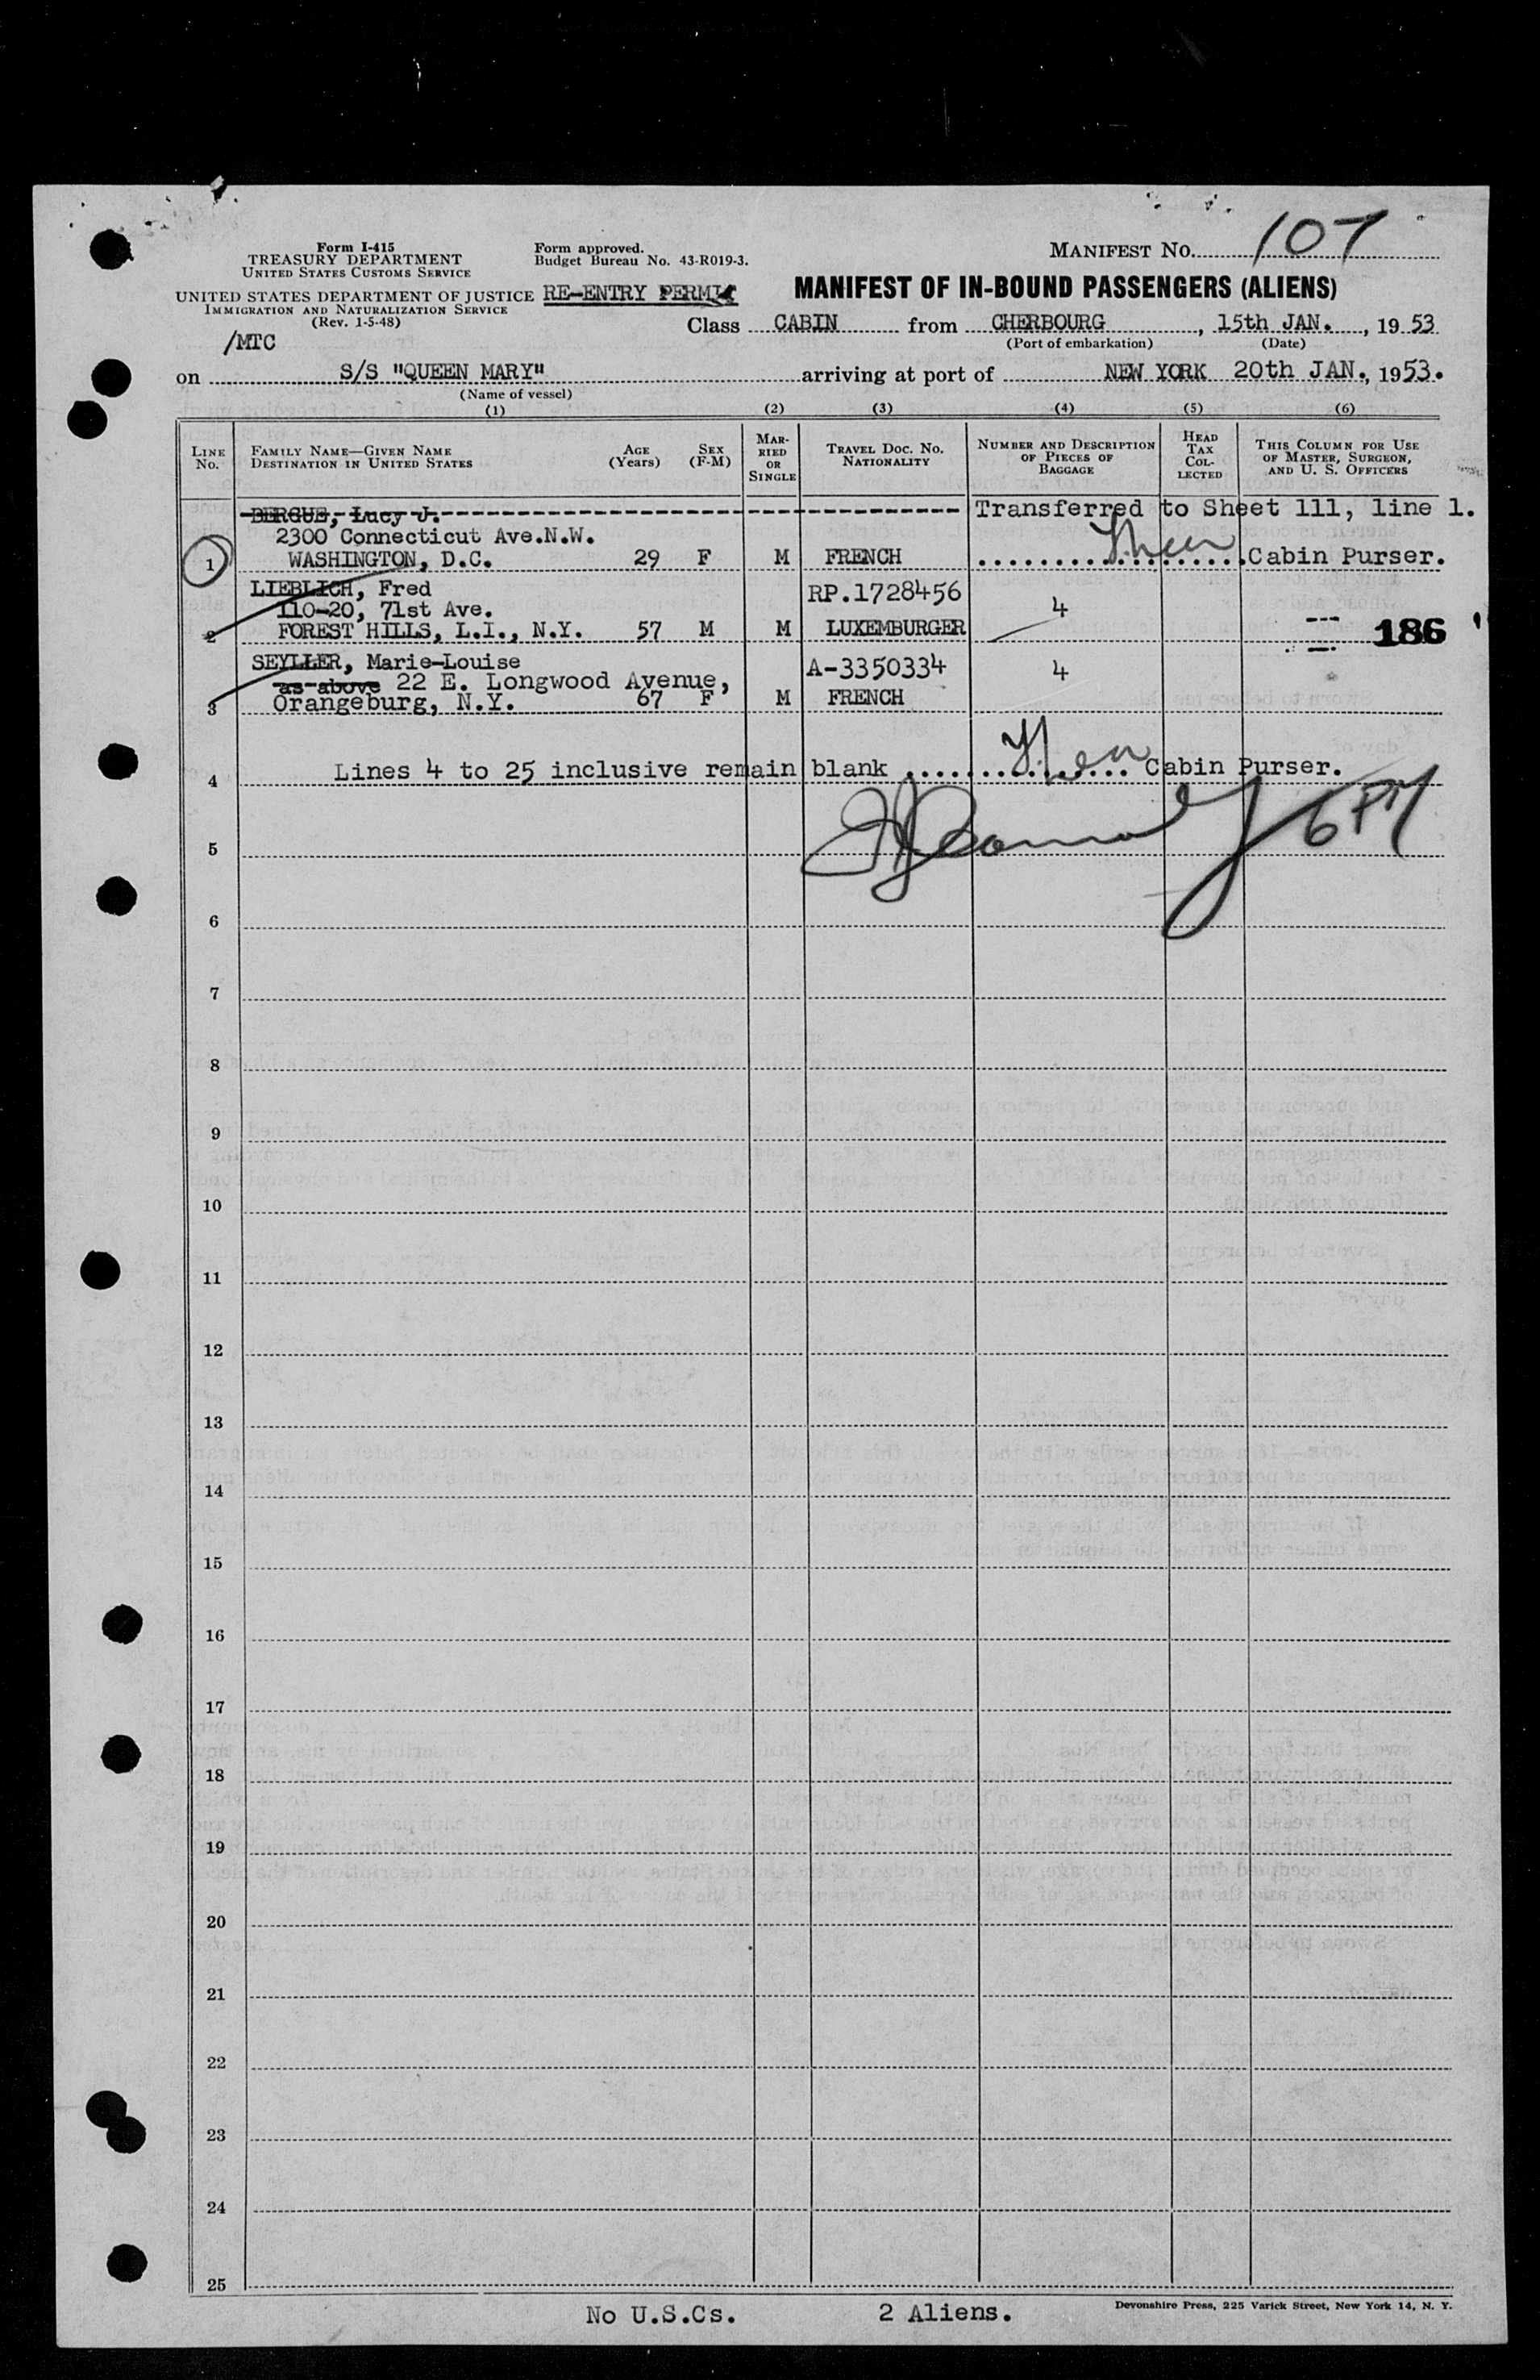 MANIFEST NO. 107
Form I-415
TREASURY DEPARTMENT
UNITED STATES CUSTOMS SERVICE
Form approved.
Budget Bureau No. 43-R019-3.
UNITED STATES DEPARTMENT OF JUSTICE
IMMIGRATION AND NATURALIZATION SERVICE
(Rev. 1-5-48)
RE-ENTRY PERMIT
MANIFEST OF IN-BOUND PASSENGERS (ALIENS)
/MTC
Class CABIN from CHERBOURG, 15th JAN., 1953
(Port of embarkation) (Date)
on S/S "QUEEN MARY" arriving at port of NEW YORK 20th JAN., 1953.
(Name of vessel)
(1) (2) (3) (4) (5) (6)
LINE NO.
FAMILY NAME—GIVEN NAME
DESTINATION IN UNITED STATES
AGE (Years)
SEX (F-M)
MAR-
RIED
OR
SINGLE
TRAVEL DOC. NO.
NATIONALITY
NUMBER AND DESCRIPTION
OF PIECES OF
BAGGAGE
HEAD
TAX
COL-
LECTED
THIS COLUMN FOR USE
OF MASTER, SURGEON,
AND U. S. OFFICERS
BERGUS, Lucy J. Transferred to Sheet 111, line 1.
2300 Connecticut Ave.N.W.
1 WASHINGTON, D.C. 29 F M FRENCH Cabin Purser.
LIEBLICH, Fred RP.1728456
110-20, 71st Ave. 4
2 FOREST HILLS, L.I., N.Y. 57 M M LUXEMBURGER 186
SEYLLER, Marie-Louise A-3350334 4
as above 22 E. Longwood Avenue,
3 Orangeburg, N.Y. 67 F M FRENCH
4 Lines 4 to 25 inclusive remain blank Cabin Purser.
6 PM
5
6
7
8
9
10
11
12
13
14
15
16
17
18
19
20
21
22
23
24
25
No U.S.Cs. 2 Aliens.
Devonshire Press, 225 Varick Street, New York 14, N. Y.